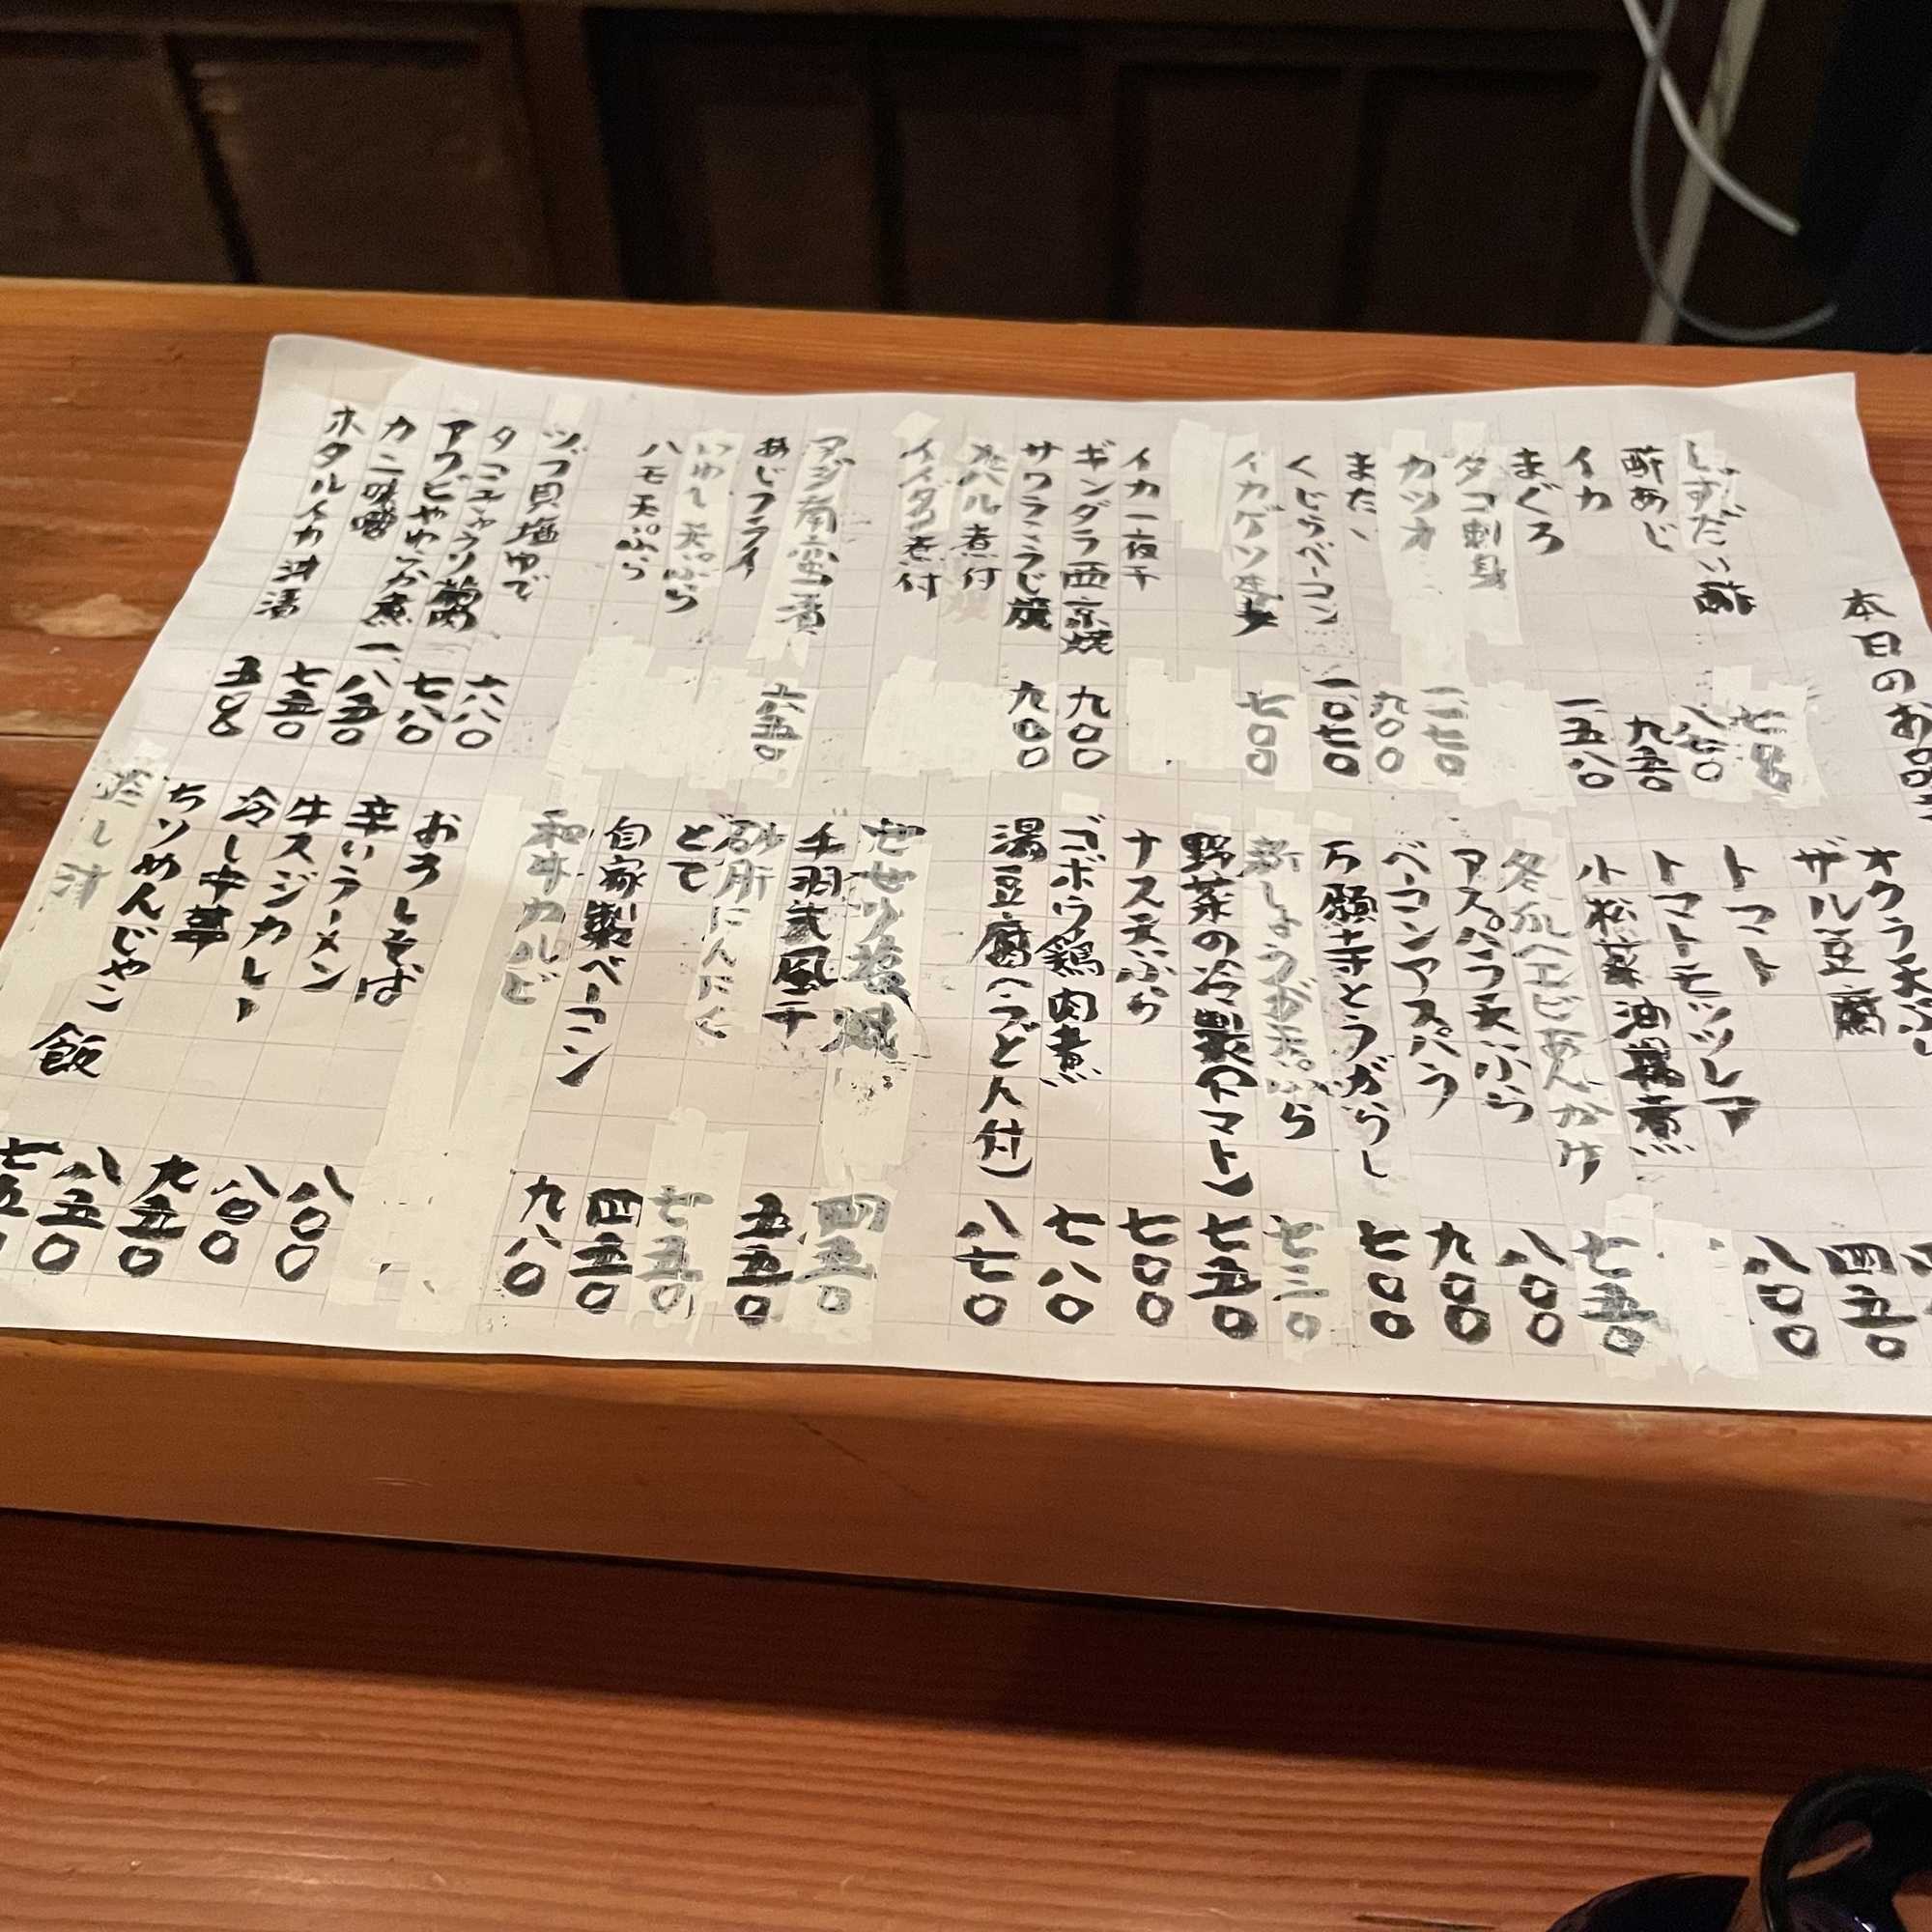 本日のお
酢
酢あじ
八七〇
イカ
九五〇
まぐろ
一五八〇
タコ刺身
カツオ
一一七〇
九〇〇
くじらベーコン
一〇七〇
イカゲソ
七〇〇
イカ一夜干
ギンダラ西京焼
九〇〇
サワラ
九〇〇
煮付
イイダコ煮付
アジ南蛮漬
六五〇
あじフライ
いわし天ぷら
ハモ天ぷら
ツブ貝塩ゆで
六八〇
タコ
七八〇
アワビやわらか煮
一、八五〇
カニ味噌
七五〇
ホタルイカ沖漬
五〇〇
オクラ天ぷら
ザル豆腐
四五〇
トマト
八〇〇
トマトモッツレア
小松菜油揚煮
七五〇
冬瓜エビあんかけ
八〇〇
アスパラ天ぷら
九〇〇
ベーコンアスパラ
七〇〇
万願寺とうがらし
七三〇
新しょうが天ぷら
七五〇
野菜の冷製(トマト)
七〇〇
ナス天ぷら
七八〇
ゴボウ鶏肉煮
八七〇
湯豆腐(うどん付)
四五〇
手羽
風干
五五〇
砂肝にんにく
七五〇
とて
四五〇
自家製ベーコン
九八〇
和牛カルビ
おろしそば
八〇〇
辛いラーメン
八〇〇
牛スジカレー
九五〇
冷し中華
八五〇
ちりめんじゃこ飯
七五
冷し汁